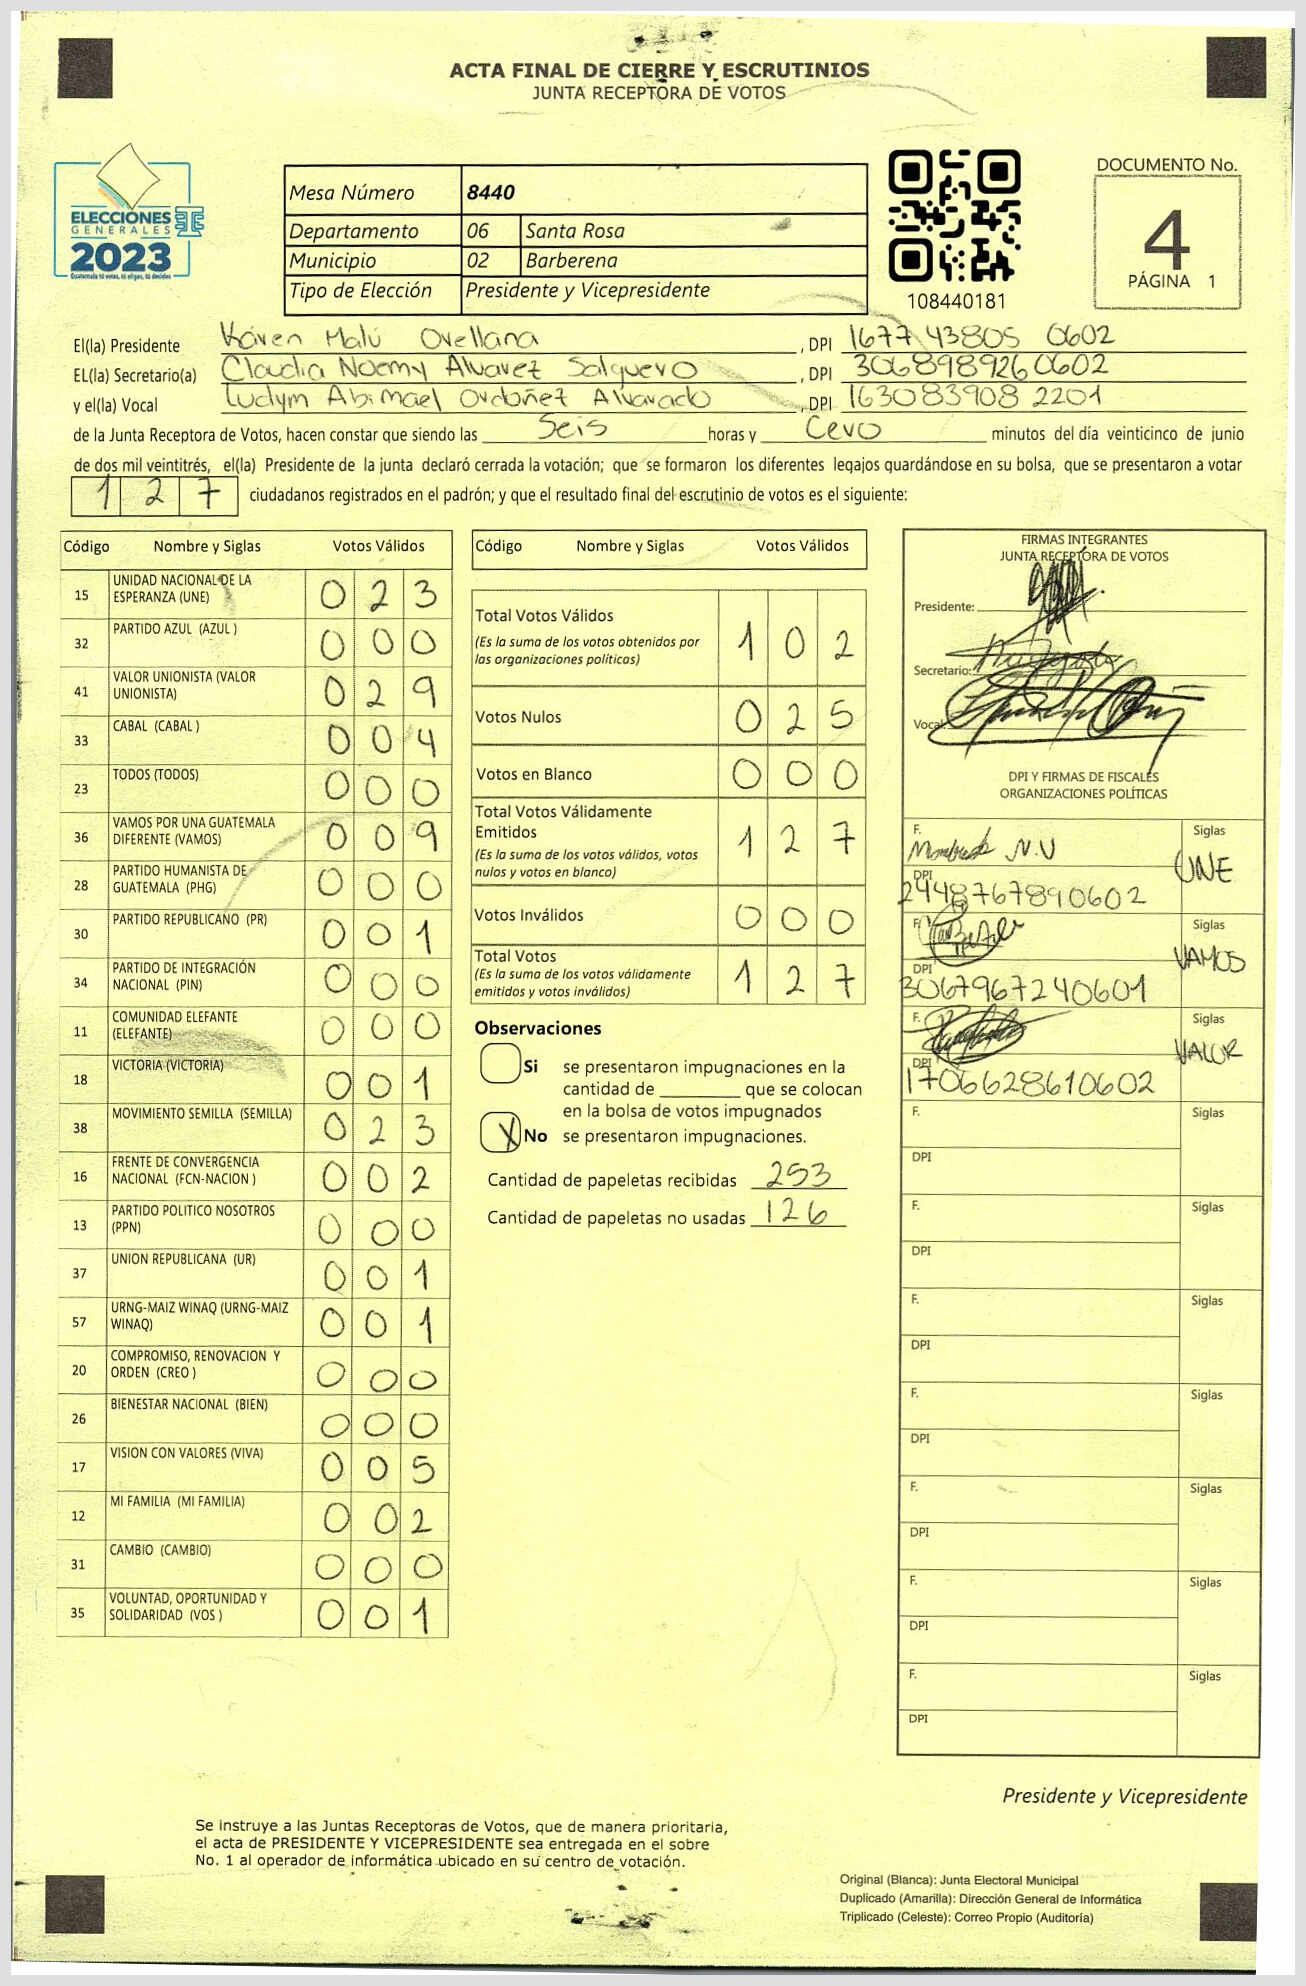 ACTA FINAL DE CIERRE Y ESCRUTINIOS
JUNTA RECEPTORA DE VOTOS
ELECCIONES
GENERALES
2023
Guatemala tú votas, tú eliges, tú decides
Mesa Número 8440
Departamento 06 Santa Rosa
Municipio 02 Barberena
Tipo de Elección Presidente y Vicepresidente
108440181
DOCUMENTO No.
4
PÁGINA 1
El(la) Presidente Karen Malú Orellana, DPI 1677 43805 0602
EL(la) Secretario(a) Claudia Noemy Alvarez Salguero, DPI 3068989260602
y el(la) Vocal Ludym Abimael Ordoñez Alvarado, DPI 163083908 2201
de la Junta Receptora de Votos, hacen constar que siendo las Seis horas y Cero minutos del día veinticinco de junio
de dos mil veintitrés, el(la) Presidente de la junta declaró cerrada la votación; que se formaron los diferentes legajos guardándose en su bolsa, que se presentaron a votar
127 ciudadanos registrados en el padrón; y que el resultado final del escrutinio de votos es el siguiente:
Código Nombre y Siglas Votos Válidos
15 UNIDAD NACIONAL DE LA ESPERANZA (UNE) 023
32 PARTIDO AZUL (AZUL ) 000
41 VALOR UNIONISTA (VALOR UNIONISTA) 029
33 CABAL (CABAL ) 004
23 TODOS (TODOS) 000
36 VAMOS POR UNA GUATEMALA DIFERENTE (VAMOS) 009
28 PARTIDO HUMANISTA DE GUATEMALA (PHG) 000
30 PARTIDO REPUBLICANO (PR) 001
34 PARTIDO DE INTEGRACIÓN NACIONAL (PIN) 000
11 COMUNIDAD ELEFANTE (ELEFANTE) 000
18 VICTORIA (VICTORIA) 001
38 MOVIMIENTO SEMILLA (SEMILLA) 023
16 FRENTE DE CONVERGENCIA NACIONAL (FCN-NACION ) 002
13 PARTIDO POLITICO NOSOTROS (PPN) 000
37 UNION REPUBLICANA (UR) 001
57 URNG-MAIZ WINAQ (URNG-MAIZ WINAQ) 001
20 COMPROMISO, RENOVACION Y ORDEN (CREO ) 000
26 BIENESTAR NACIONAL (BIEN) 000
17 VISION CON VALORES (VIVA) 005
12 MI FAMILIA (MI FAMILIA) 002
31 CAMBIO (CAMBIO) 000
35 VOLUNTAD, OPORTUNIDAD Y SOLIDARIDAD (VOS ) 001
Código Nombre y Siglas Votos Válidos
Total Votos Válidos 102
(Es la suma de los votos obtenidos por
las organizaciones políticas)
Votos Nulos 025
Votos en Blanco 000
Total Votos Válidamente
Emitidos 127
(Es la suma de los votos válidos, votos
nulos y votos en blanco)
Votos Inválidos 000
Total Votos 127
(Es la suma de los votos válidamente
emitidos y votos inválidos)
Observaciones
Si se presentaron impugnaciones en la
cantidad de ________ que se colocan
en la bolsa de votos impugnados
X No se presentaron impugnaciones.
Cantidad de papeletas recibidas 253
Cantidad de papeletas no usadas 126
FIRMAS INTEGRANTES
JUNTA RECEPTORA DE VOTOS
Presidente:
Secretario:
Vocal:
DPI Y FIRMAS DE FISCALES
ORGANIZACIONES POLÍTICAS
F. Siglas
UNE
DPI
2448767890602
F. Siglas
VAMOS
DPI
3067967240601
F. Siglas
VALOR
DPI
1706628610602
F. Siglas
DPI
F. Siglas
DPI
F. Siglas
DPI
F. Siglas
DPI
F. Siglas
DPI
F. Siglas
DPI
F. Siglas
DPI
Presidente y Vicepresidente
Se instruye a las Juntas Receptoras de Votos, que de manera prioritaria,
el acta de PRESIDENTE Y VICEPRESIDENTE sea entregada en el sobre
No. 1 al operador de informática ubicado en su centro de votación.
Original (Blanca): Junta Electoral Municipal
Duplicado (Amarilla): Dirección General de Informática
Triplicado (Celeste): Correo Propio (Auditoría)